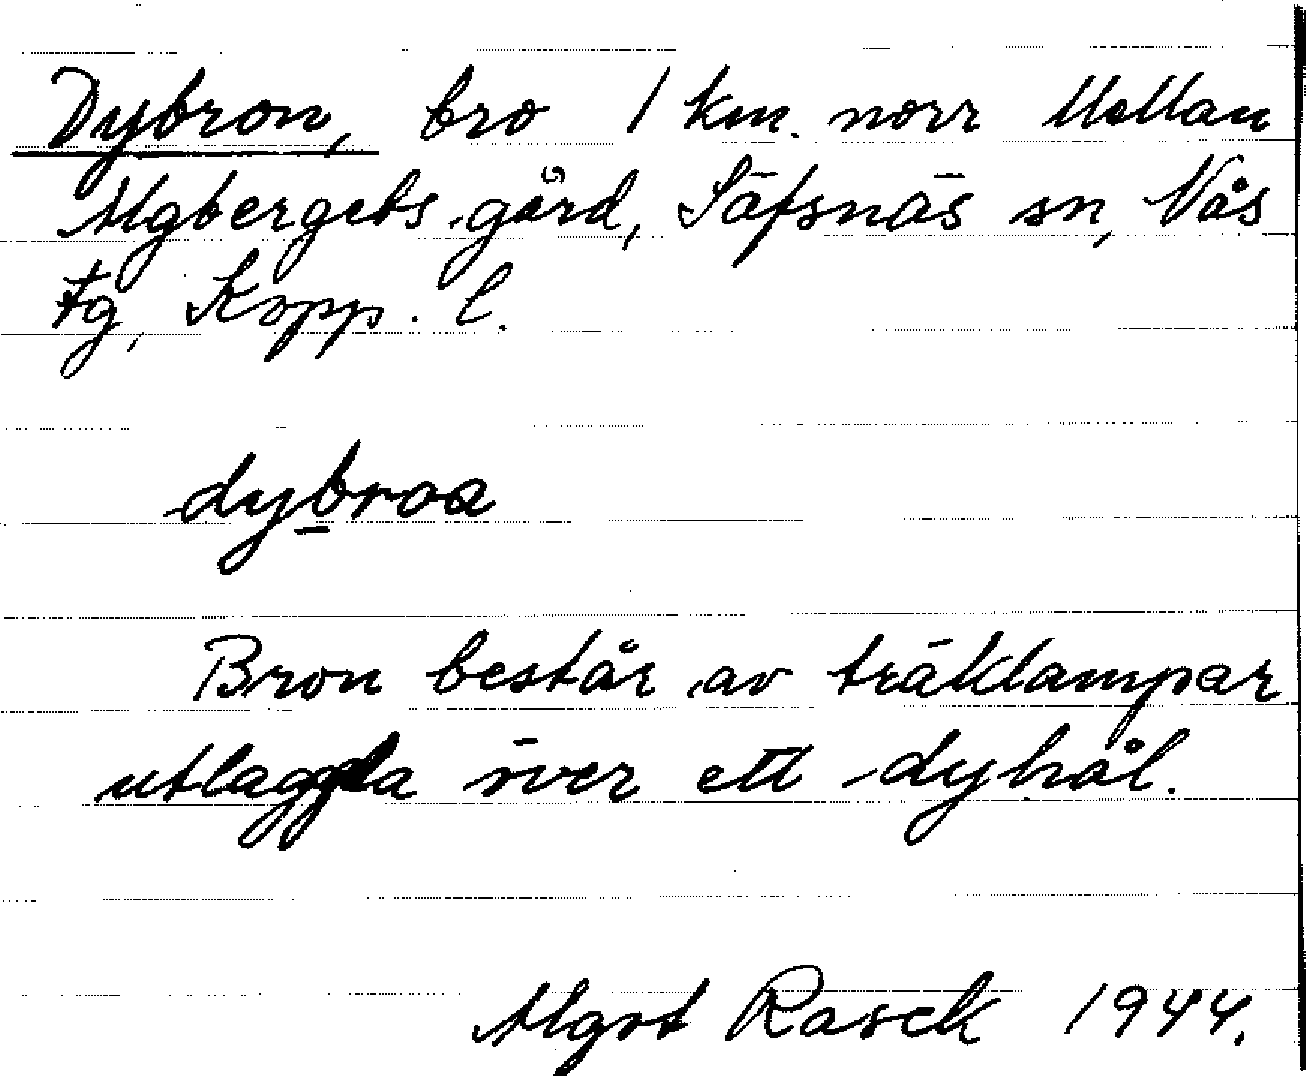 Dybron, bro 1 km. norr Mellan
Älgbergets gård, Säfsnäs sn, Nås
fg, Kopp. l.
dybroa
Bron består av träklampar
utlaggda över ett dyhål.
Algot Rasck 1944.